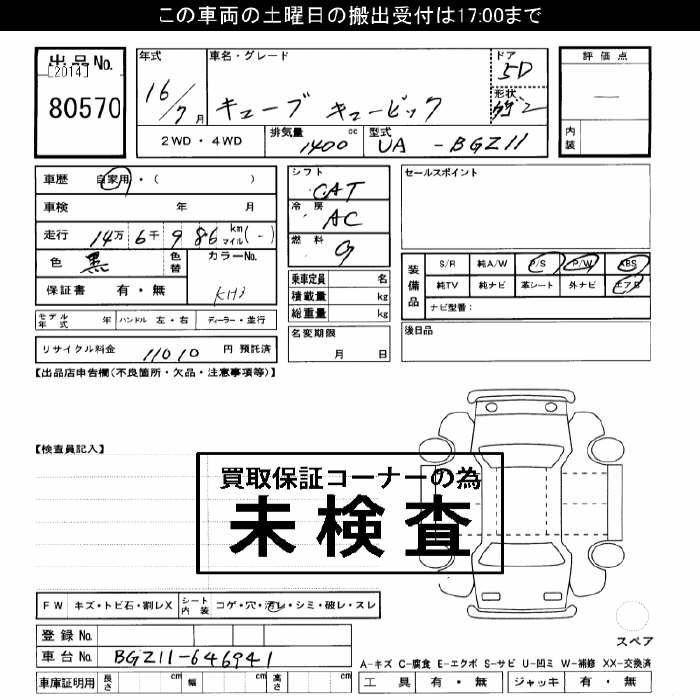 この車両の土曜日の搬出受付は17:00まで
出品No.
[2014]
80570
年式
16/7月
車名・グレード
キューブ キュービック
ドア
5D
形状
評価点
—
内装
2WD・4WD
排気量
1400 cc
型式
UA - BGZ11
車歴 自家用・( )
車検 年 月
走行 14万 6千 9 86 km マイル(-)
色 黒 色替
カラーNo.
KH3
保証書 有・無
モデル年式 年 ハンドル 左・右 ディーラー・並行
リサイクル料金 11010 円 預託済
シフト
CAT
冷房
AC
燃料
G
乗車定員 名
積載量 kg
総重量 kg
名変期限
月 日
セールスポイント
装備品
S/R 純A/W P/S P/W ABS
純TV 純ナビ 革シート 外ナビ エアB
ナビ型番:
後日品
【出品店申告欄(不良箇所・欠品・注意事項等)】
【検査員記入】
買取保証コーナーの為
未検査
FW キズ・トビ石・割レX シート内装 コゲ・穴・汚レ・シミ・破レ・スレ
登録No.
車台No. BGZ11-646941
車庫証明用 長さ cm 幅 cm 高さ cm
スペア
A-キズ C-腐食 E-エクボ S-サビ U-凹ミ W-補修 XX-交換済
工具 有・無 ジャッキ 有・無